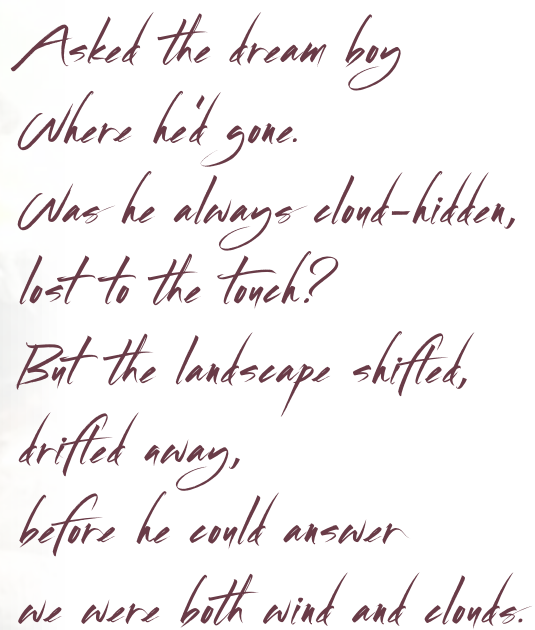 Asked the dream boy
Where he'd gone.
Was he always cloud-hidden,
lost to the touch?
But the landscape shifted,
drifted away,
before he could answer
we were both wind and clouds.